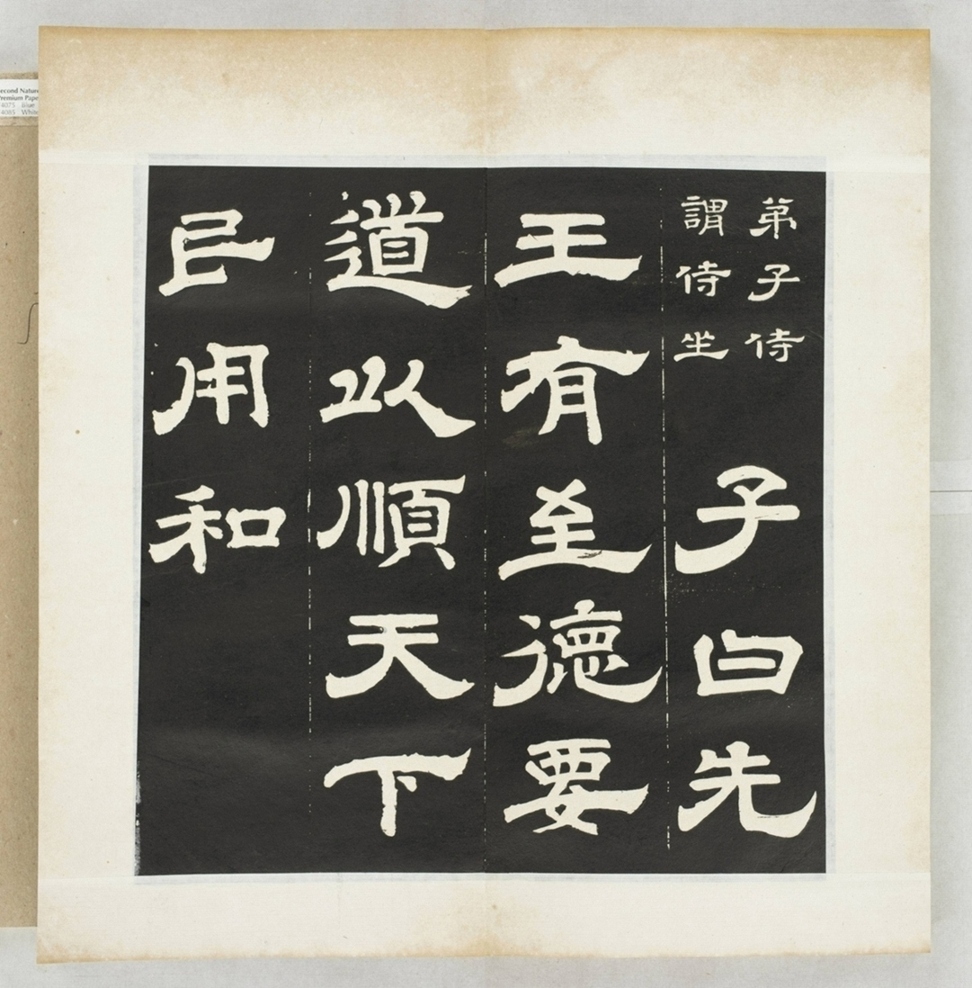 弟子侍
謂侍坐
子曰先
王有至德要
道以順天下
民用和
econd Nature
remium Pape
Blue
White